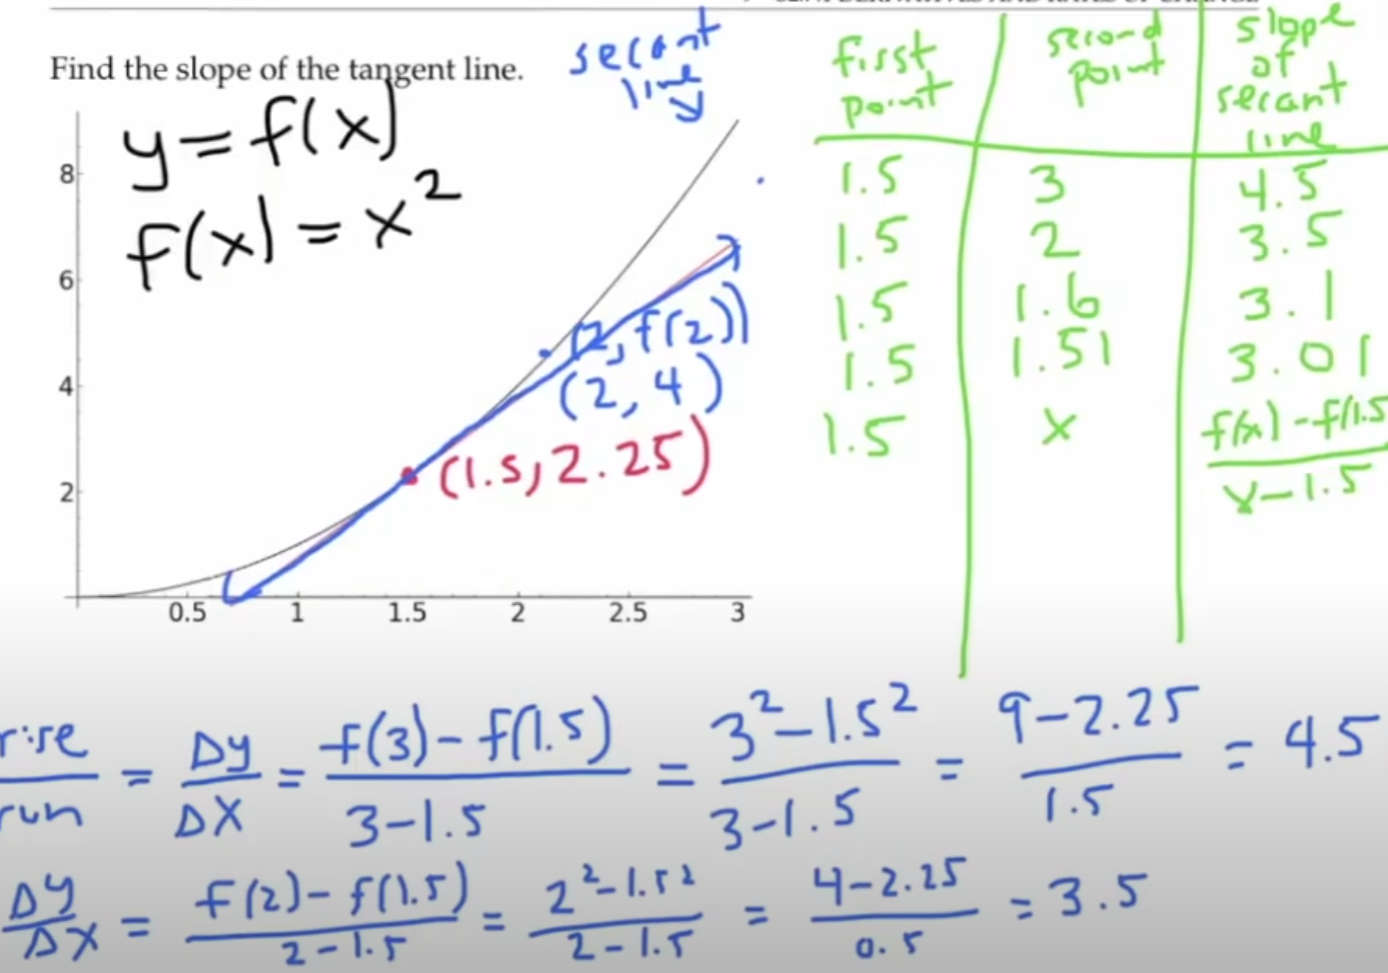 Find the slope of the tangent line.
secant
line
y = f(x)
f(x) = x²
8
6
4
2
0.5 1 1.5 2 2.5 3
(2, f(2))
(2, 4)
(1.5, 2.25)
first point | second point | slope of secant line
1.5 | 3 | 4.5
1.5 | 2 | 3.5
1.5 | 1.6 | 3.1
1.5 | 1.51 | 3.01
1.5 | x | f(x) - f(1.5 / x - 1.5
rise/run = Δy/Δx = f(3) - f(1.5) / 3 - 1.5 = 3² - 1.5² / 3 - 1.5 = 9 - 2.25 / 1.5 = 4.5
Δy/Δx = f(2) - f(1.5) / 2 - 1.5 = 2² - 1.5² / 2 - 1.5 = 4 - 2.25 / 0.5 = 3.5